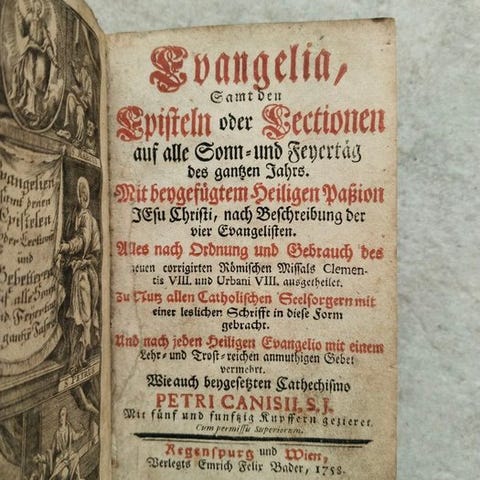 Evangelia,
Samt den
Episteln oder Lectionen
auf alle Sonn- und Feyertäg
des gantzen Jahrs.
Mit beygefügtem Heiligen Paßion
JEsu Christi, nach Beschreibung der
vier Evangelisten.
Alles nach Ordnung und Gebrauch des
neuen corrigirten Römischen Missals Clemen-
tis VIII. und Urbani VIII. ausgetheilet.
Zu Nutz allen Catholischen Seelsorgern mit
einer leslichen Schrifft in diese Form
gebracht.
Und nach jeden Heiligen Evangelio mit einem
Lehr- und Trost-reichen anmuthigen Gebet
vermehrt.
Wie auch beygesetzten Cathechismo
PETRI CANISII, S.J.
Mit fünf und funfftzig Kupffern gezieret.
Cum permissu Superiorum.
Regenspurg und Wien,
Verlegts Emrich Felix Bader, 1758.
Evangelien
samt denen
Epistelen
oder Lectionen
und
Gebettern
auf alle Sonn
und Feyertag
gantzen Jahrs